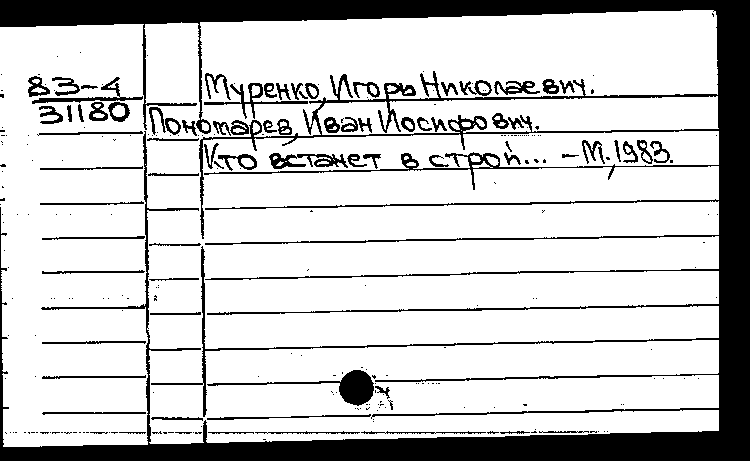 83-4 Муренко, Игорь Николаевич.
31180 Пономарев, Иван Иосифович.
Кто встанет в строй... - М., 1983.